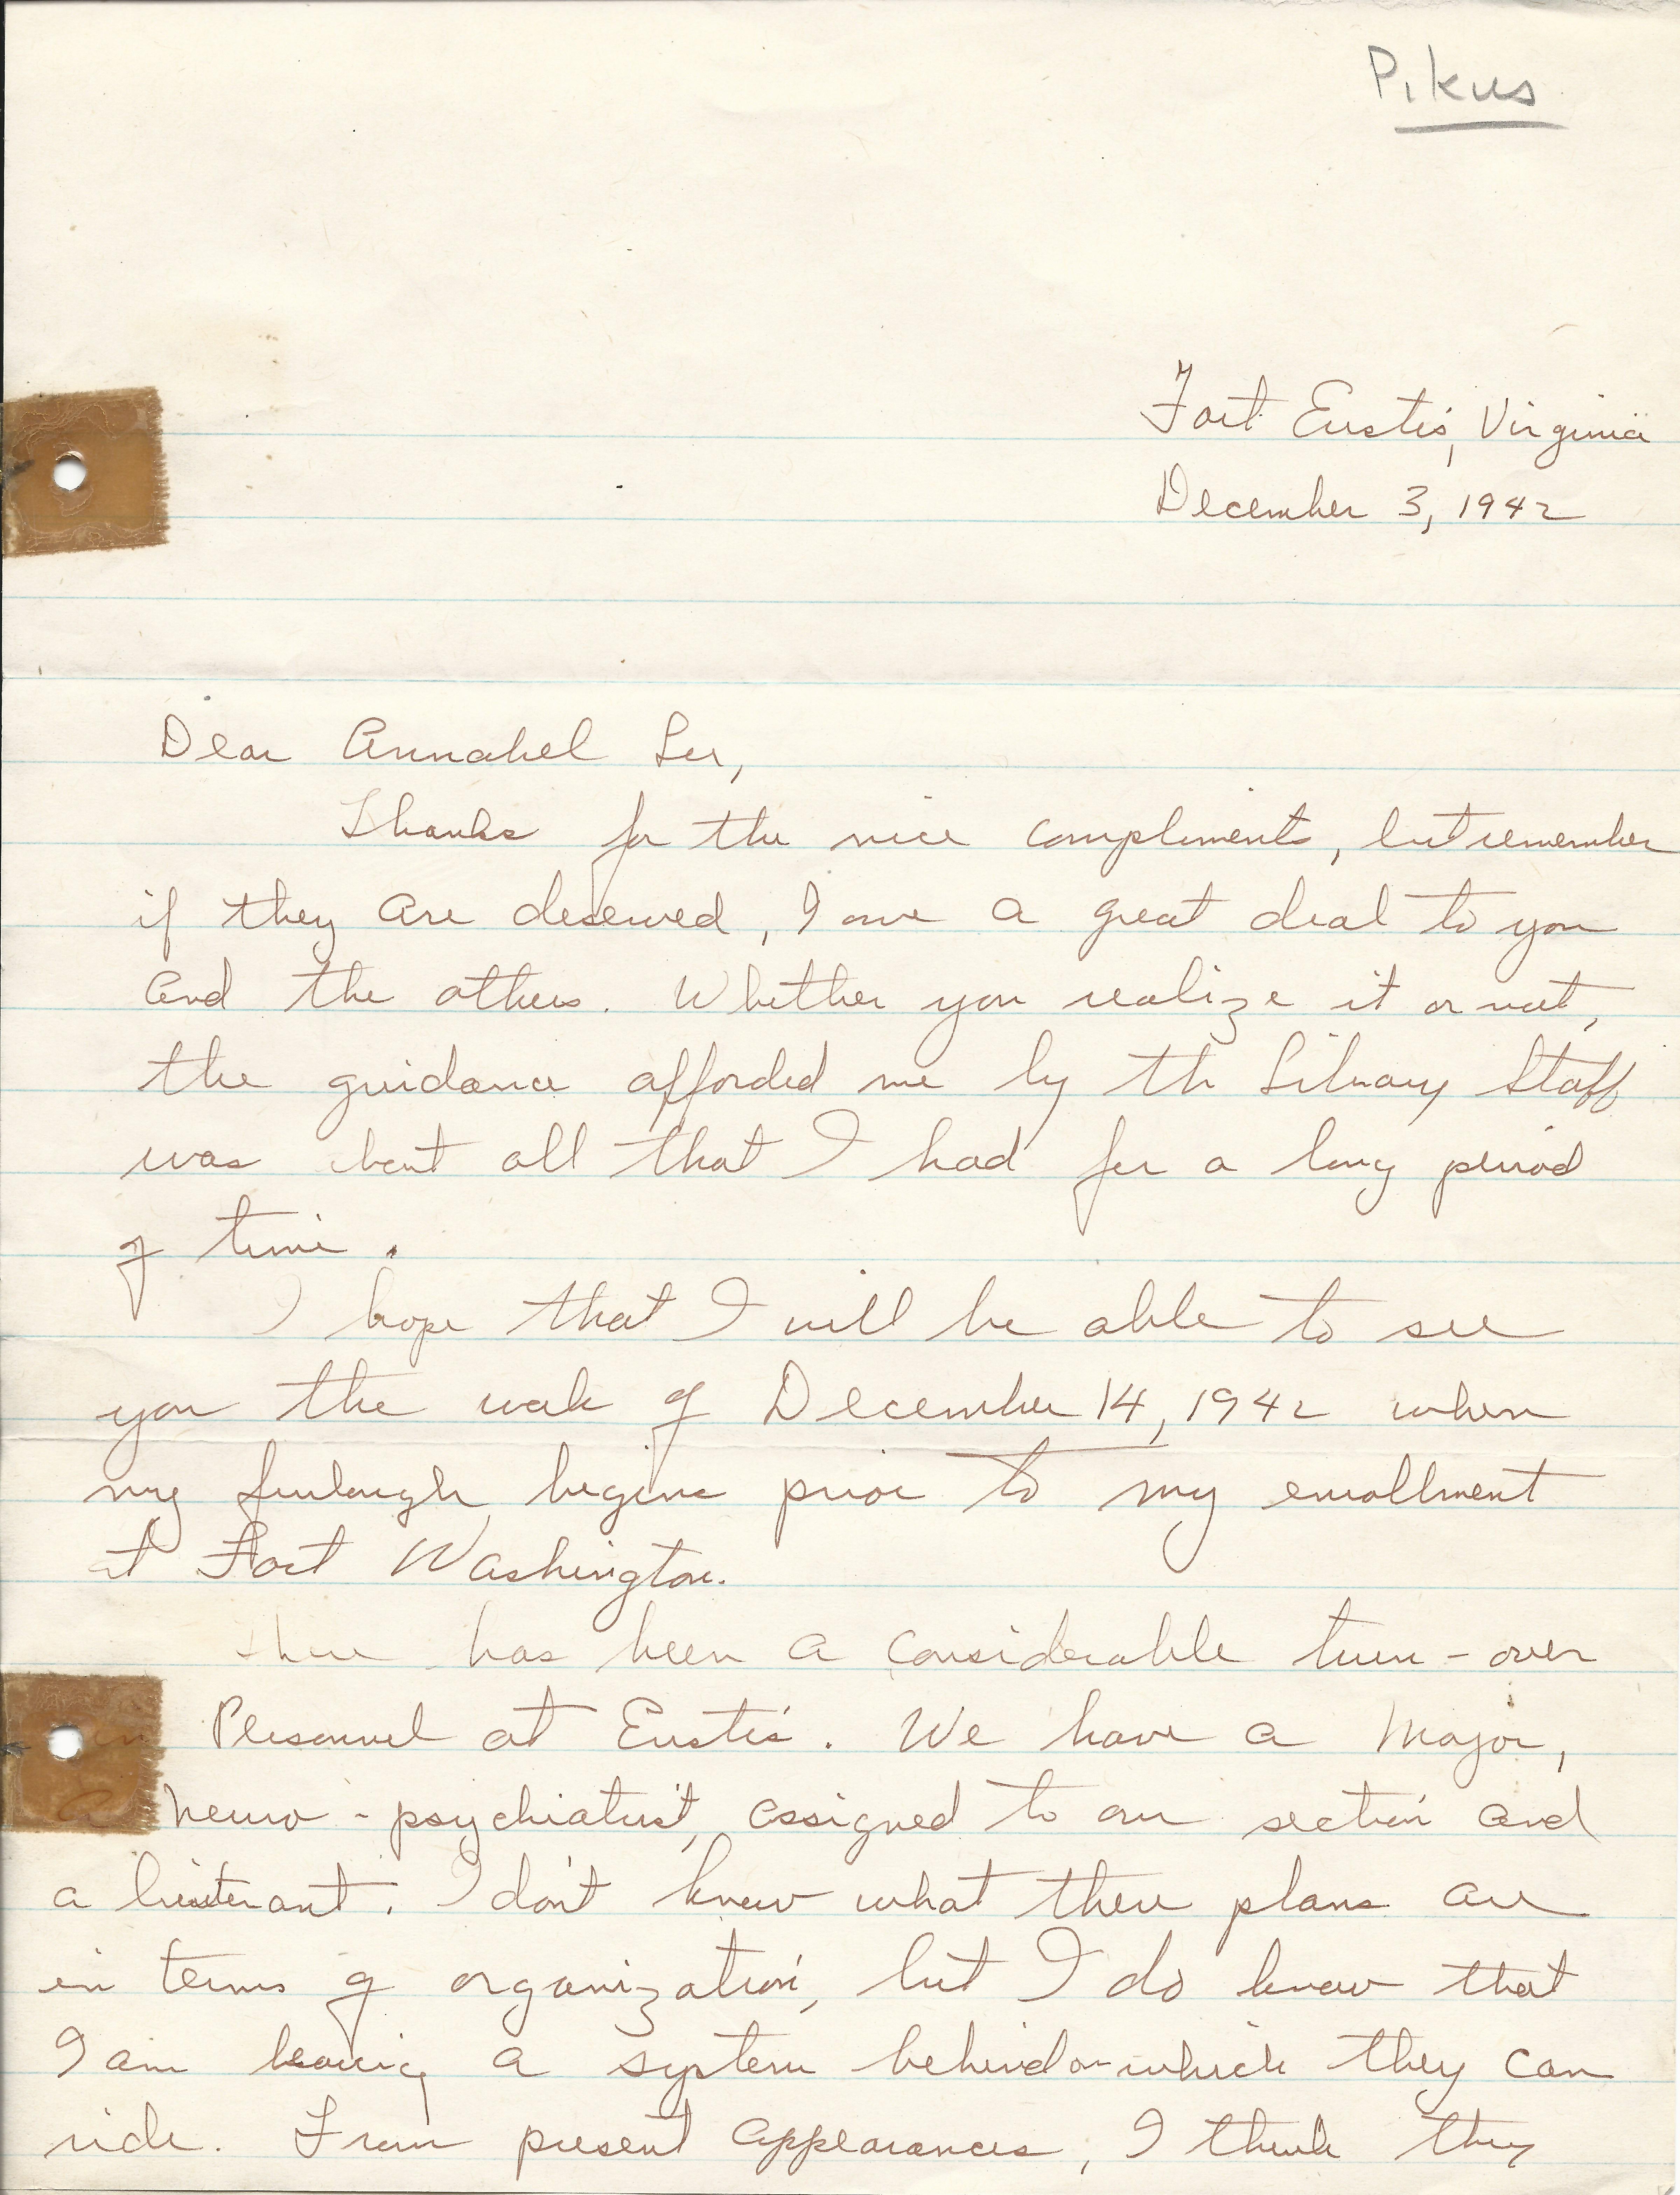 Pikus
Fort Eustis, Virginia
December 3, 1942
Dear Annabel Lee,
Thanks for the nice compliments, but remember
if they are deserved, I owe a great deal to you
and the others. Whether you realize it or not,
the guidance afforded me by th Library Staff
was about all that I had for a long period
of time.
I hope that I will be able to see
you the week of December 14, 1942 when
my furlough begins prior to my enrollment
at Fort Washington.
There has been a considerable turn-over
in Personnel at Eustis. We have a Major,
a neuro-psychiatrist, assigned to our section and
a lieutenant. I don't know what there plans are
in terms of organization, but I do know that
I am leaving a system behind on which they can
ride. From present appearances, I think they